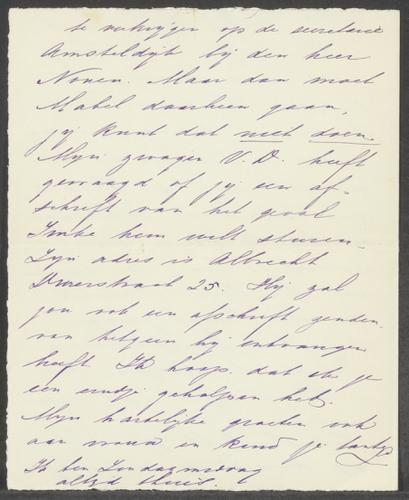 te verkrijgen op de secretarie
Amsteldijk bij den heer
Nonen. Maar dan moet
Mabel daarheen gaan,
jij kunt dat niet doen.
Mijn zwager V. D. heeft
gevraagd of jij een af-
schrift van het geval
hem wilt sturen.
Zijn adres is Albrecht
Durerstraat 25. Hij zal
jou ook een afschrift zenden
van hetgeen hij ontvangen
heeft. Ik hoop dat ik je
een eindje geholpen heb.
Mijn hartelijke groeten ook
aan vrouw en kind je
Ik ben Zondagmiddag
altijd thuis.